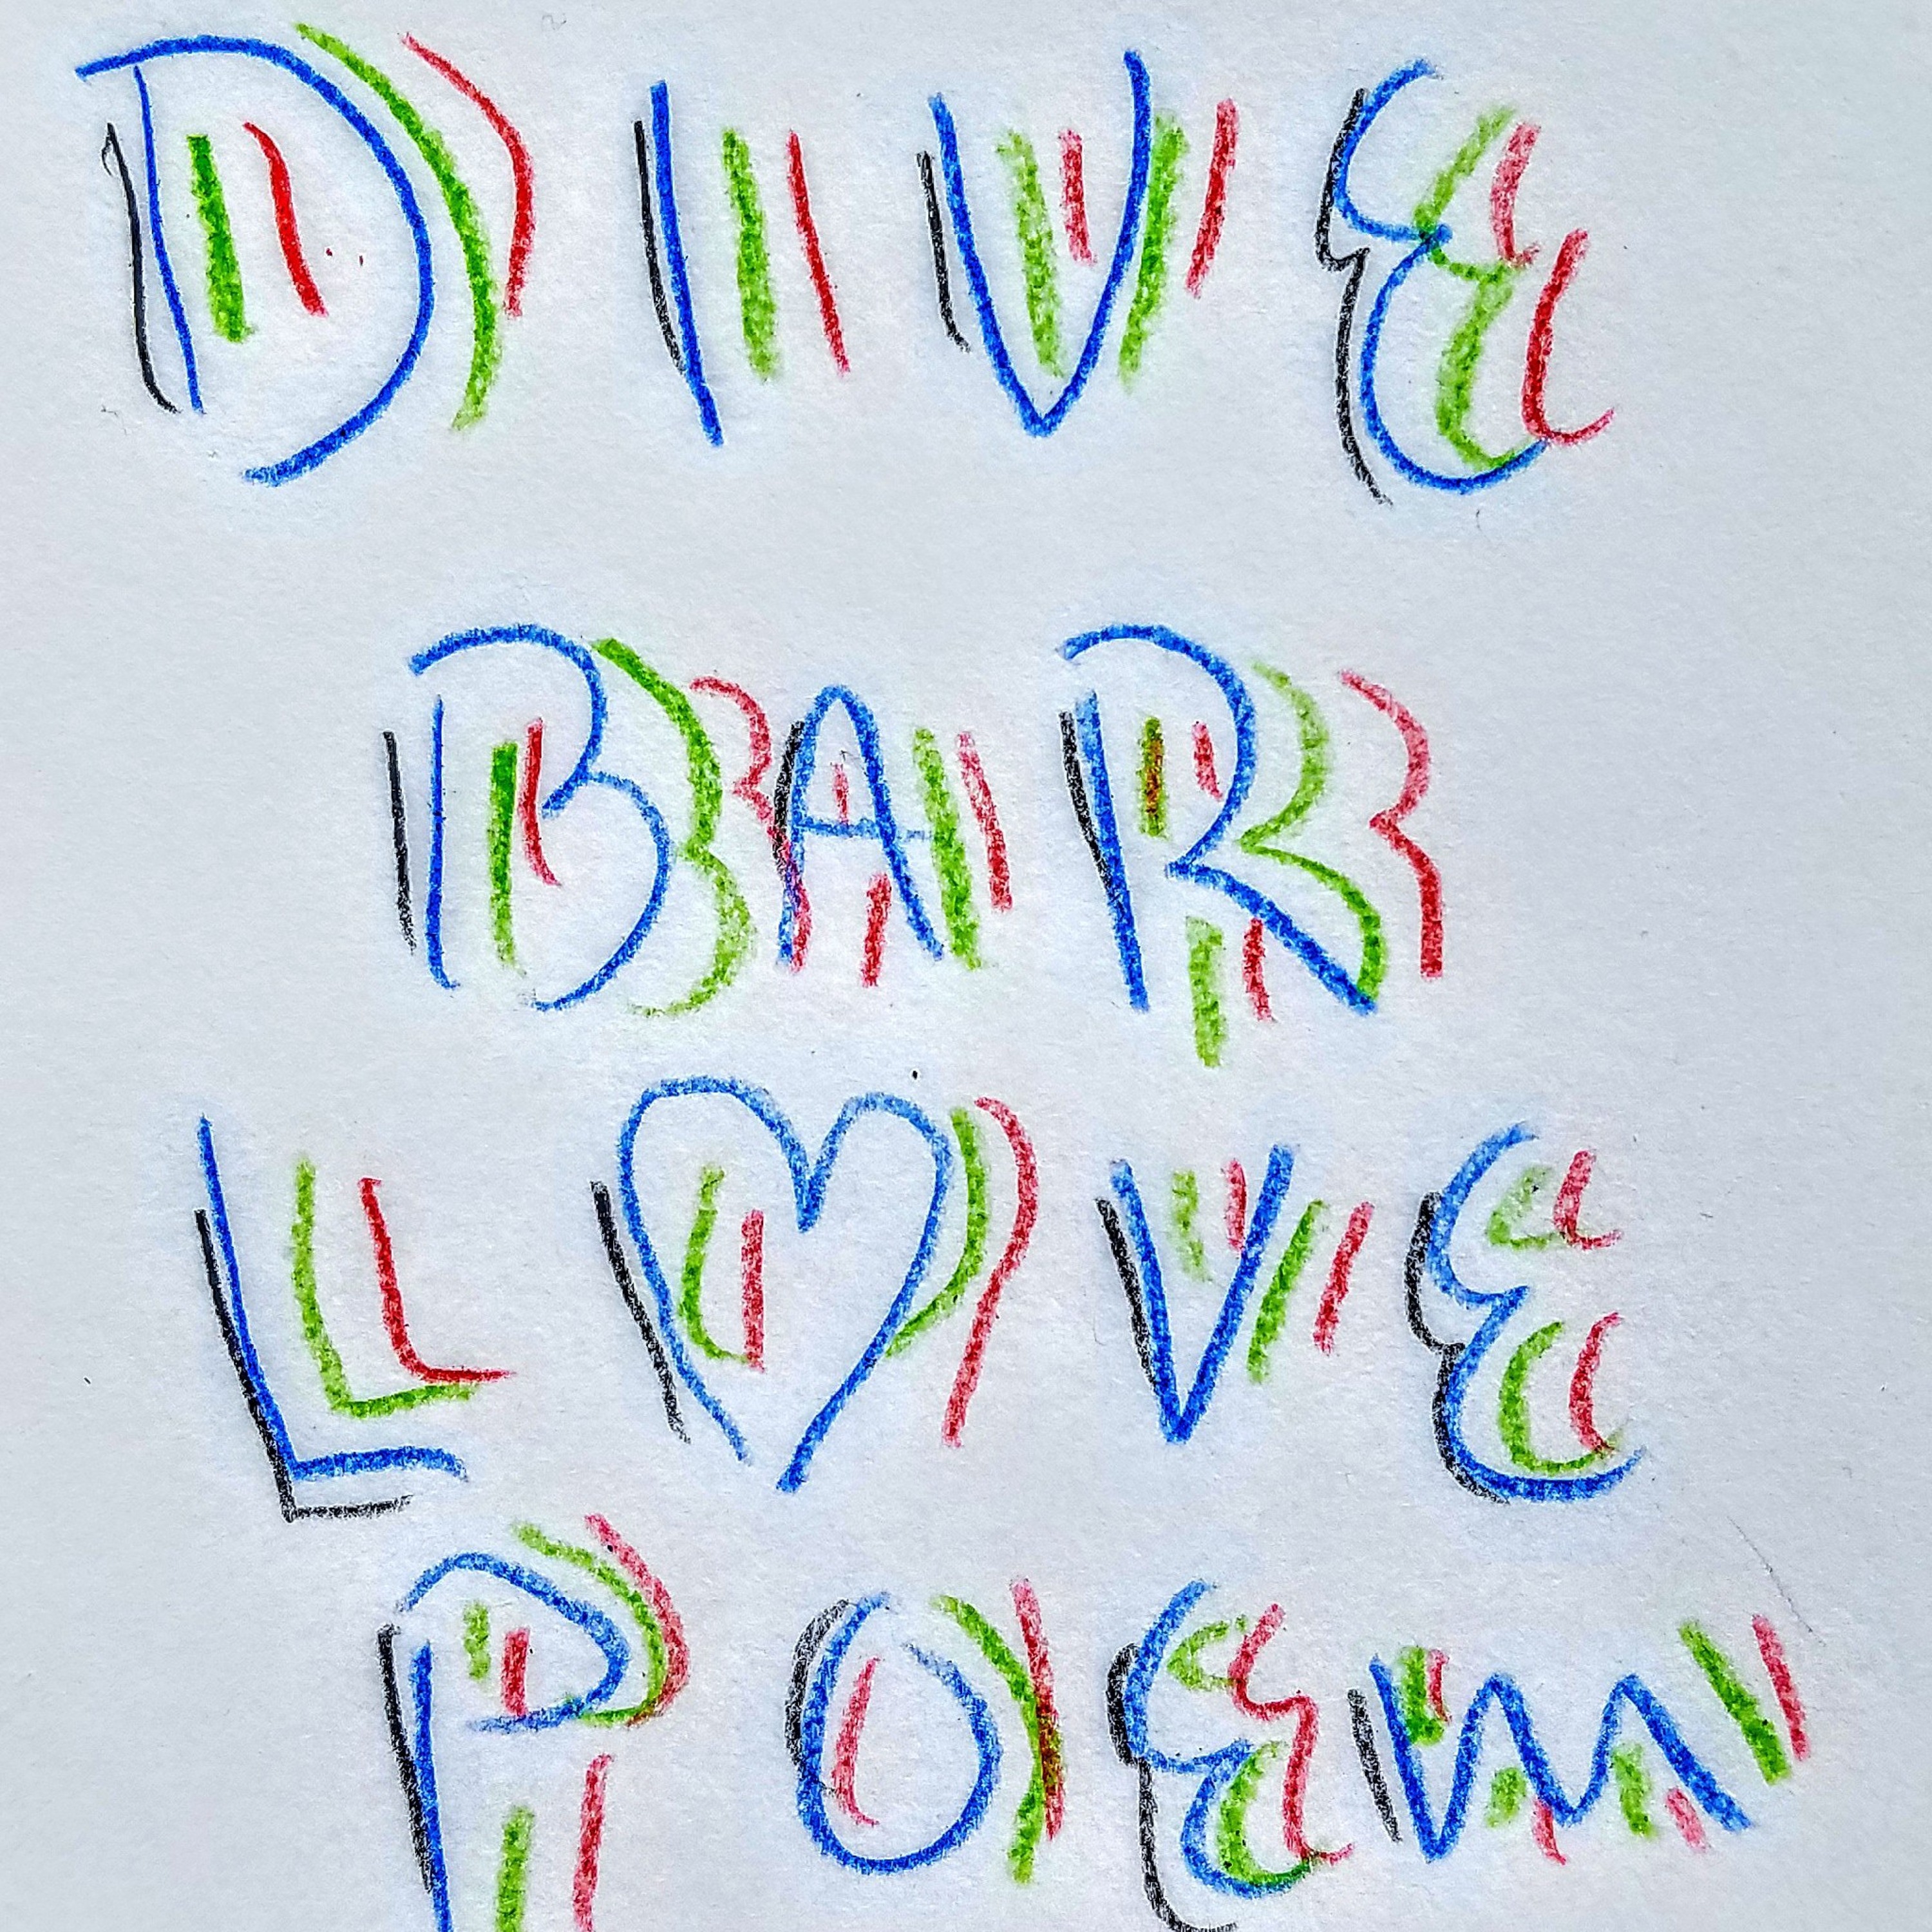 DIVE
BAR
L♥VE
POEM